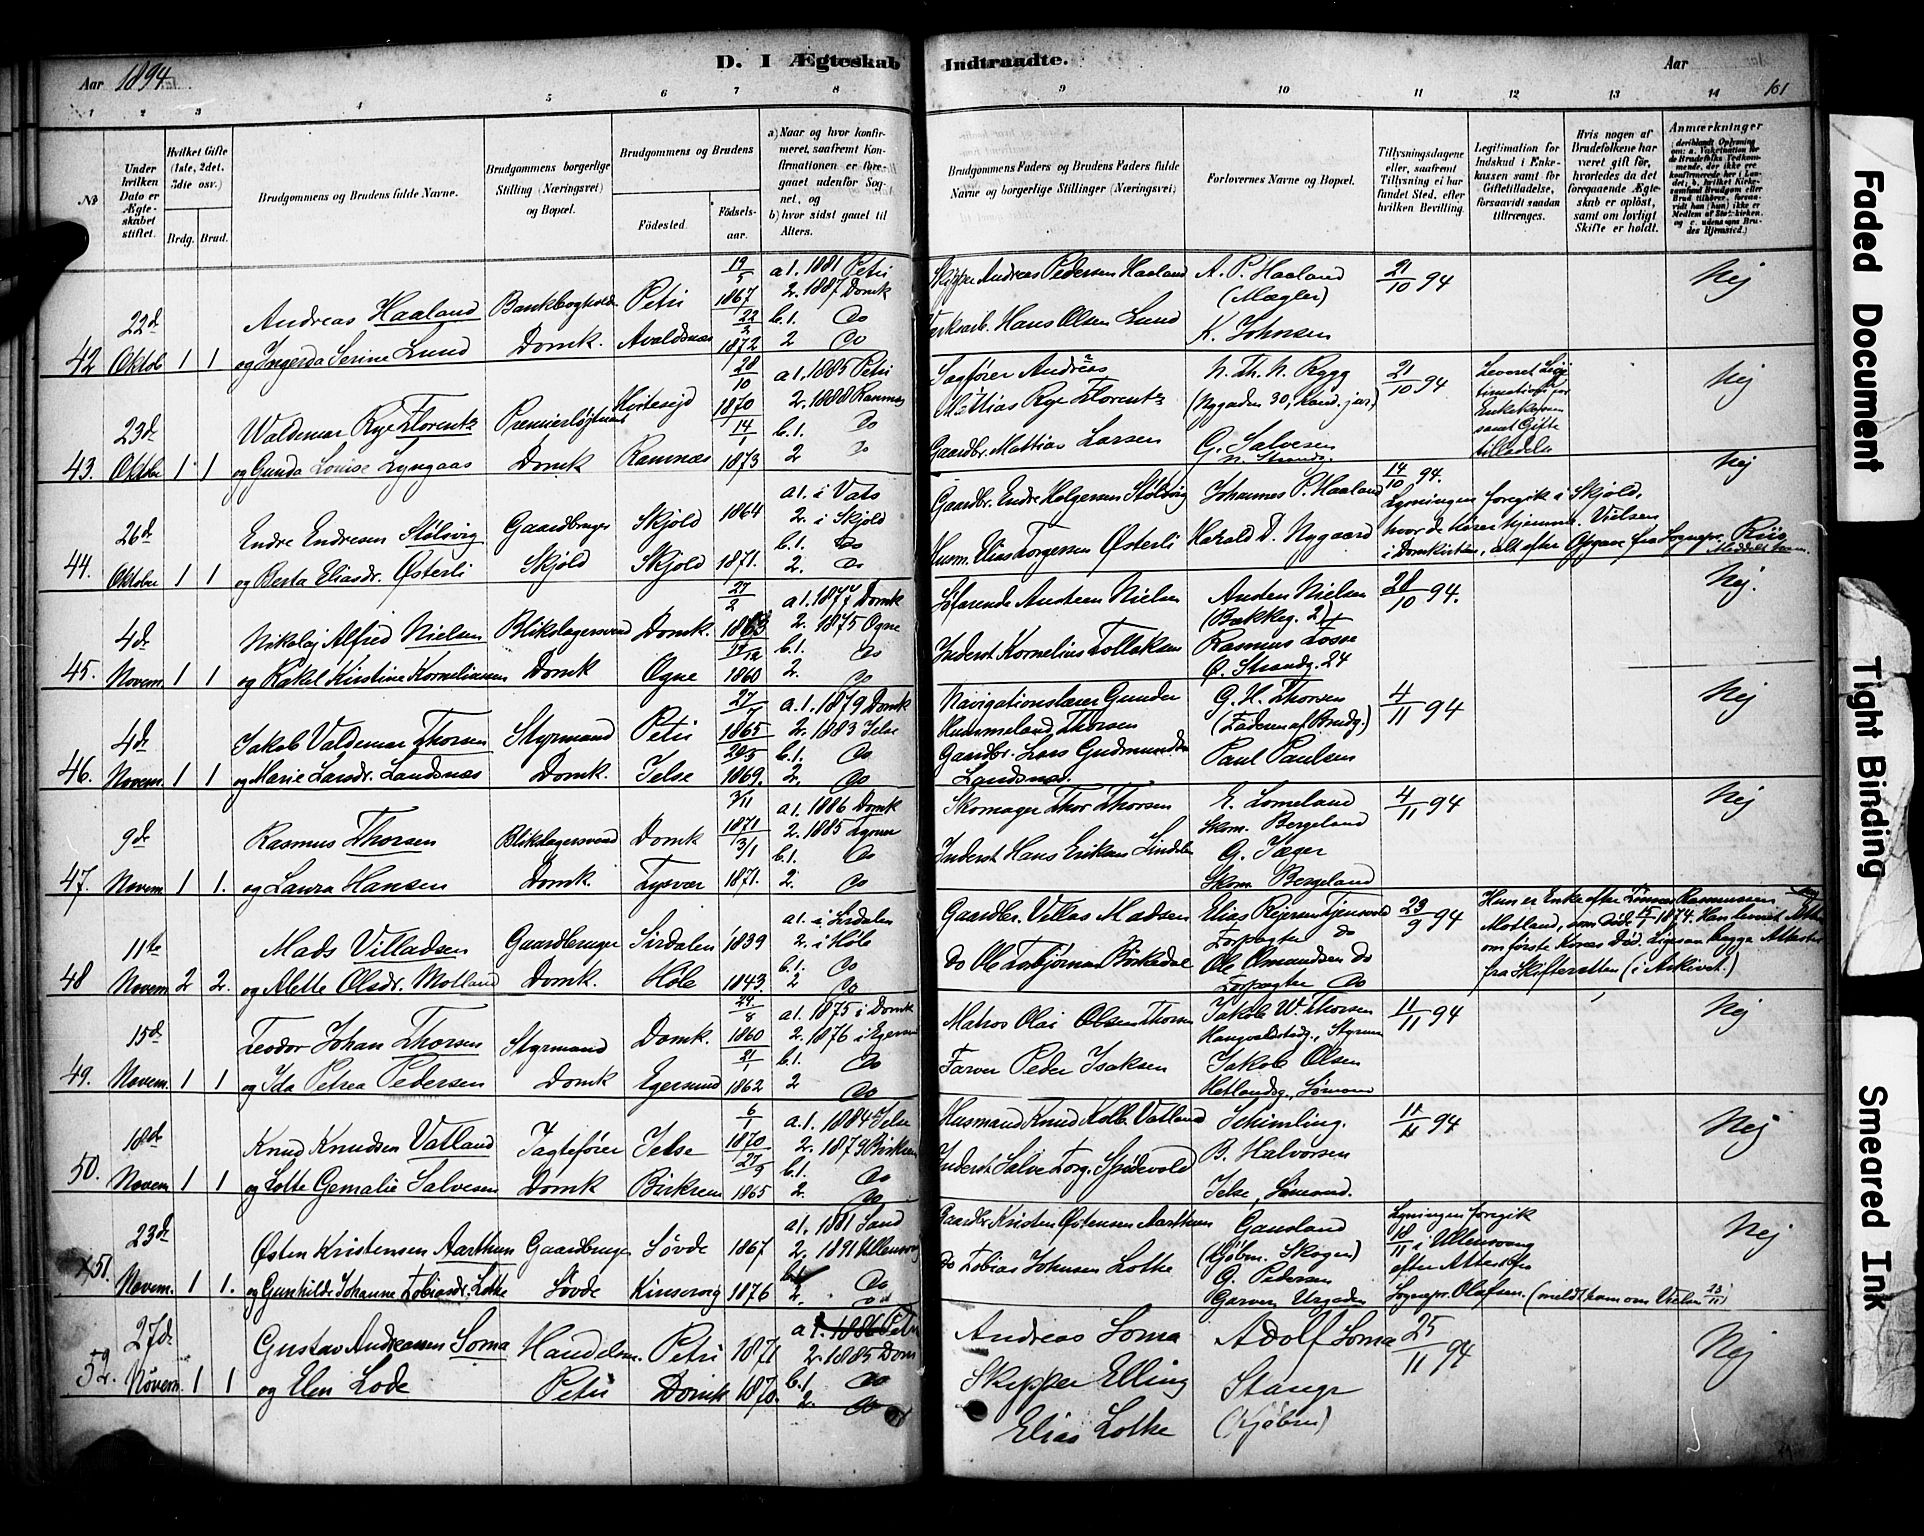 Aar 1894
D. I Ægteskab Indtraadte.
Aar
161
1 2 3 4 5 6 7 8 9 10 11 12 13 14
No
Under hvilken Dato er Ægteskabet stiftet.
Hvilket Gifte (1ste, 2det, 3die osv.)
Brdg. Brud.
Brudgommens og Brudens fulde Navne.
Brudgommens borgerlige Stilling (Næringsvei) og Bopæl.
Brudgommens og Brudens
Fødested.
Fødselsaar.
a) Naar og hvor konfirmeret, saafremt Konfirmationen er foregaaet udenfor Sognet, og
b) hvor sidst gaaet til Alters.
Brudgommens Faders og Brudens Faders fulde Navne og borgerlige Stillinger (Næringsvei)
Forlovernes Navne og Bopæl.
Tillysningsdagene eller, saafremt Tillysning ei har fundet Sted, efter hvilken Bevilling.
Legitimation for Indskud i Enkekassen samt for Giftetilladelse, forsaavidt saadan tiltrænges.
Hvis nogen af Brudefolkene har været gift før, hvorledes da det foregaaende Ægteskab er opløst, samt om lovligt Skifte er holdt.
Anmærkninger
42 22d Oktob 1 1
Andreas Haaland
og Ingerda Serine Lund
Domk.
Petri
Avaldsnæs
19/5 1867
22/2 1872
a 1. 1881 Petri
2. 1887 Domk
b. 1. Do
2 Do
Skipper Andreas Pedersen Haaland
Hans Olsen Lund
A. P. Haaland
(Mægler)
K. Johnsen
21/10 94
Nej
43. 23d Oktbr 1 1
Waldemar Rye Florentz
og Gunda Louise Lyngaas
Premierløjtnant
Domk
Hvitesejd
Ramnæs
28/10 1870
14/1 1873
a 1. 1885 Petri
2. 1888 Ramnæs
b. 1. Do
2 Do
Sagfører Andreas
Mattias Rye Florentz
Gaardbr. Mattias Larsen
N. Th. N. Rygg
(Nygaden 30, kand. jur)
G. Salvesen
N. Strandg.
21/10 94
Leveret Legitimation for Enkekassen samt Gifte tilladelse
Nej
44. 26d Oktober 1 1
Endre Endresen Stølsvig
og Berta Eliasdr. Østerli
Gaardbruger
Skjold
Skjold
Skjold
1864
1871.
a 1. i Vats
2. i Skjold
b. 1. Do
2. Do
Gaardbr. Endre Helgesen Stølsvig
Husm. Elias Torgersen Østerli
Johannes P. Haaland
Harald D. Nygaard
14/10 94.
Lysningen foregik i Skjold,
hvor de hører hjemme. Vielsen
i Domkirken, alt efter Opgave fra Sognepr. Riis
Nej
45. 4d Novem. 1 1
Nikolaj Alfred Nielsen
og Rakel Kirstine Korneliussen
Blikslagersvend
Domk
Domk.
Ogne
27/2 1863
1860
a 1. 1877 Domk
2. 1875 Ogne
b. 1. Do
2. Do
Søfarende Andreas Nielsen
Inderst Kornelius Tollaksen
Anders Nielsen
(Bakkeg. 2)
Rasmus Tosse
Ø. Strandg. 24
28/10 94.
Nej.
46. 4d Novem. 1 1
Jakob Valdemar Thorsen
og Marie Larsdr. Landsnæs
Styrmand
Domk.
Petri
Jelse
27/7 1865
20/5 1869.
a. 1. 1879 Domk
2. 1883 Jelse
b. 1. Do
2. Do
Navigationslærer Gunder
Hummeland Thorsen
Gaardbr. Lars Gudmundsen
Landsnæs.
G. H. Thorsen
(Faderen af Brudg.)
Paul Paulsen
4/11 94
Nej
47. 9d Novem 1 1.
Rasmus Thorsen
og Laura Hansen
Blikslagersvend
Domk.
Domk
Tysvær
3/11 1871
13/1 1871.
a 1. 1886 Domk
2. 1885 Tysvær
b. 1. Do
2. Do
Skomager Thor Thorsen
Inderst Hans Eriksen Lindalen
E. Lomeland
Skom. Bergeland
G. Jæger
Skom. Bergeland
4/11 94
Nej
48 11te Novem 2 2.
Mads Villadsen
og Alette Olsdr. Motland
Gaardbruger
Domk.
Sirdalen
Høle
1839
1843.
a 1. i Sirdalen
2. i Høle
b. 1. Do
2 Do
Gaardbr. Villas Madsen
do Ole Torbjørnsen Birkedal
Elias Rejersen Tjensvold
Forpagter do
Ole Omundsen do
Forpagter Do
23/9 94
Hun er Enke efter Tønnes Rasmussen
Motland, som døde 1874. Han leveret Attest
om første Kones Død. Ligesaa begge Attester
fra Skifteretten (i Arkivet.)
49. 15d Novem. 1 1
Teodor Johan Thorsen
og Ida Petrea Pedersen
Styrmand
Domk
Domk.
Egersund
24/8 1860
21/1 1862
a 1. 1875 i Domk
2. 1876 i Egersu
b. 1. Do
2 Do
Matros Olai Olsen Thorsen
Farver Peder Isaksen
Jakob W. Thorsen
Styrm
Jakob Olsen
Hetlandsg., Sømand
11/11 94
Nej
50. 18d Novem 1 1
Knud Knudsen Vatland
og Lotte Gemalie Salvesen
Jagtefører
Domk
Jelse
Birkrem
6/1 1870
27/9 1865
a. 1. 1884 Jelse
2. 1879 Birkrem
b. 1. Do
2. Do
Husmand Knud Kolb. Vatland
Inderst Salve Torg. Spødevold
Schimling.
B. Halvorsen
Jelse, Sømand.
11/11 94
Nej
51. 23d Novem. 1 1.
Østen Kristensen Aarthun
og Gunhilde Johanne Tobiasdr. Lothe
Gaardbruger
Søvde
Søvde
Kinservig
1867
1876
a 1. 1881 Sand
2. 1891 Ullensvang
b. 1. Do
2. Do
Gaardbr Kristen Østensen Aarthun
do Tobias Johnsen Lothe
Gausland
(Kjøbm. Skagen)
G. Pedersen
Garver, Urgaden
Lysningen foregik
18/11 i Ullensvang
efter Attest fra
Sognepr. Olafsen. (meldt ham om Vielsen 23/11)
Nej
52. 27d Novem. 1 1
Gustav Andreassen Soma
og Elen Lode
Handelsm.
Petri
Petri
Domk
1871
1870.
a 1. 1886 Petri
2. 1885 Dom
b. 1 Do
2. Do
Andreas Soma
Skipper Elling
Elias Lothe
Adolf Soma
Stange
(Kjøbm)
25/11 94
Nej
Faded Document
Tight Binding
Smeared Ink